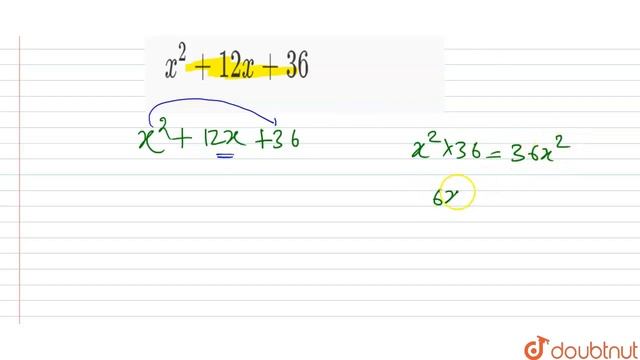 x² + 12x + 36
x² + 12x + 36
x² × 36 = 36x²
6x
doubtnut